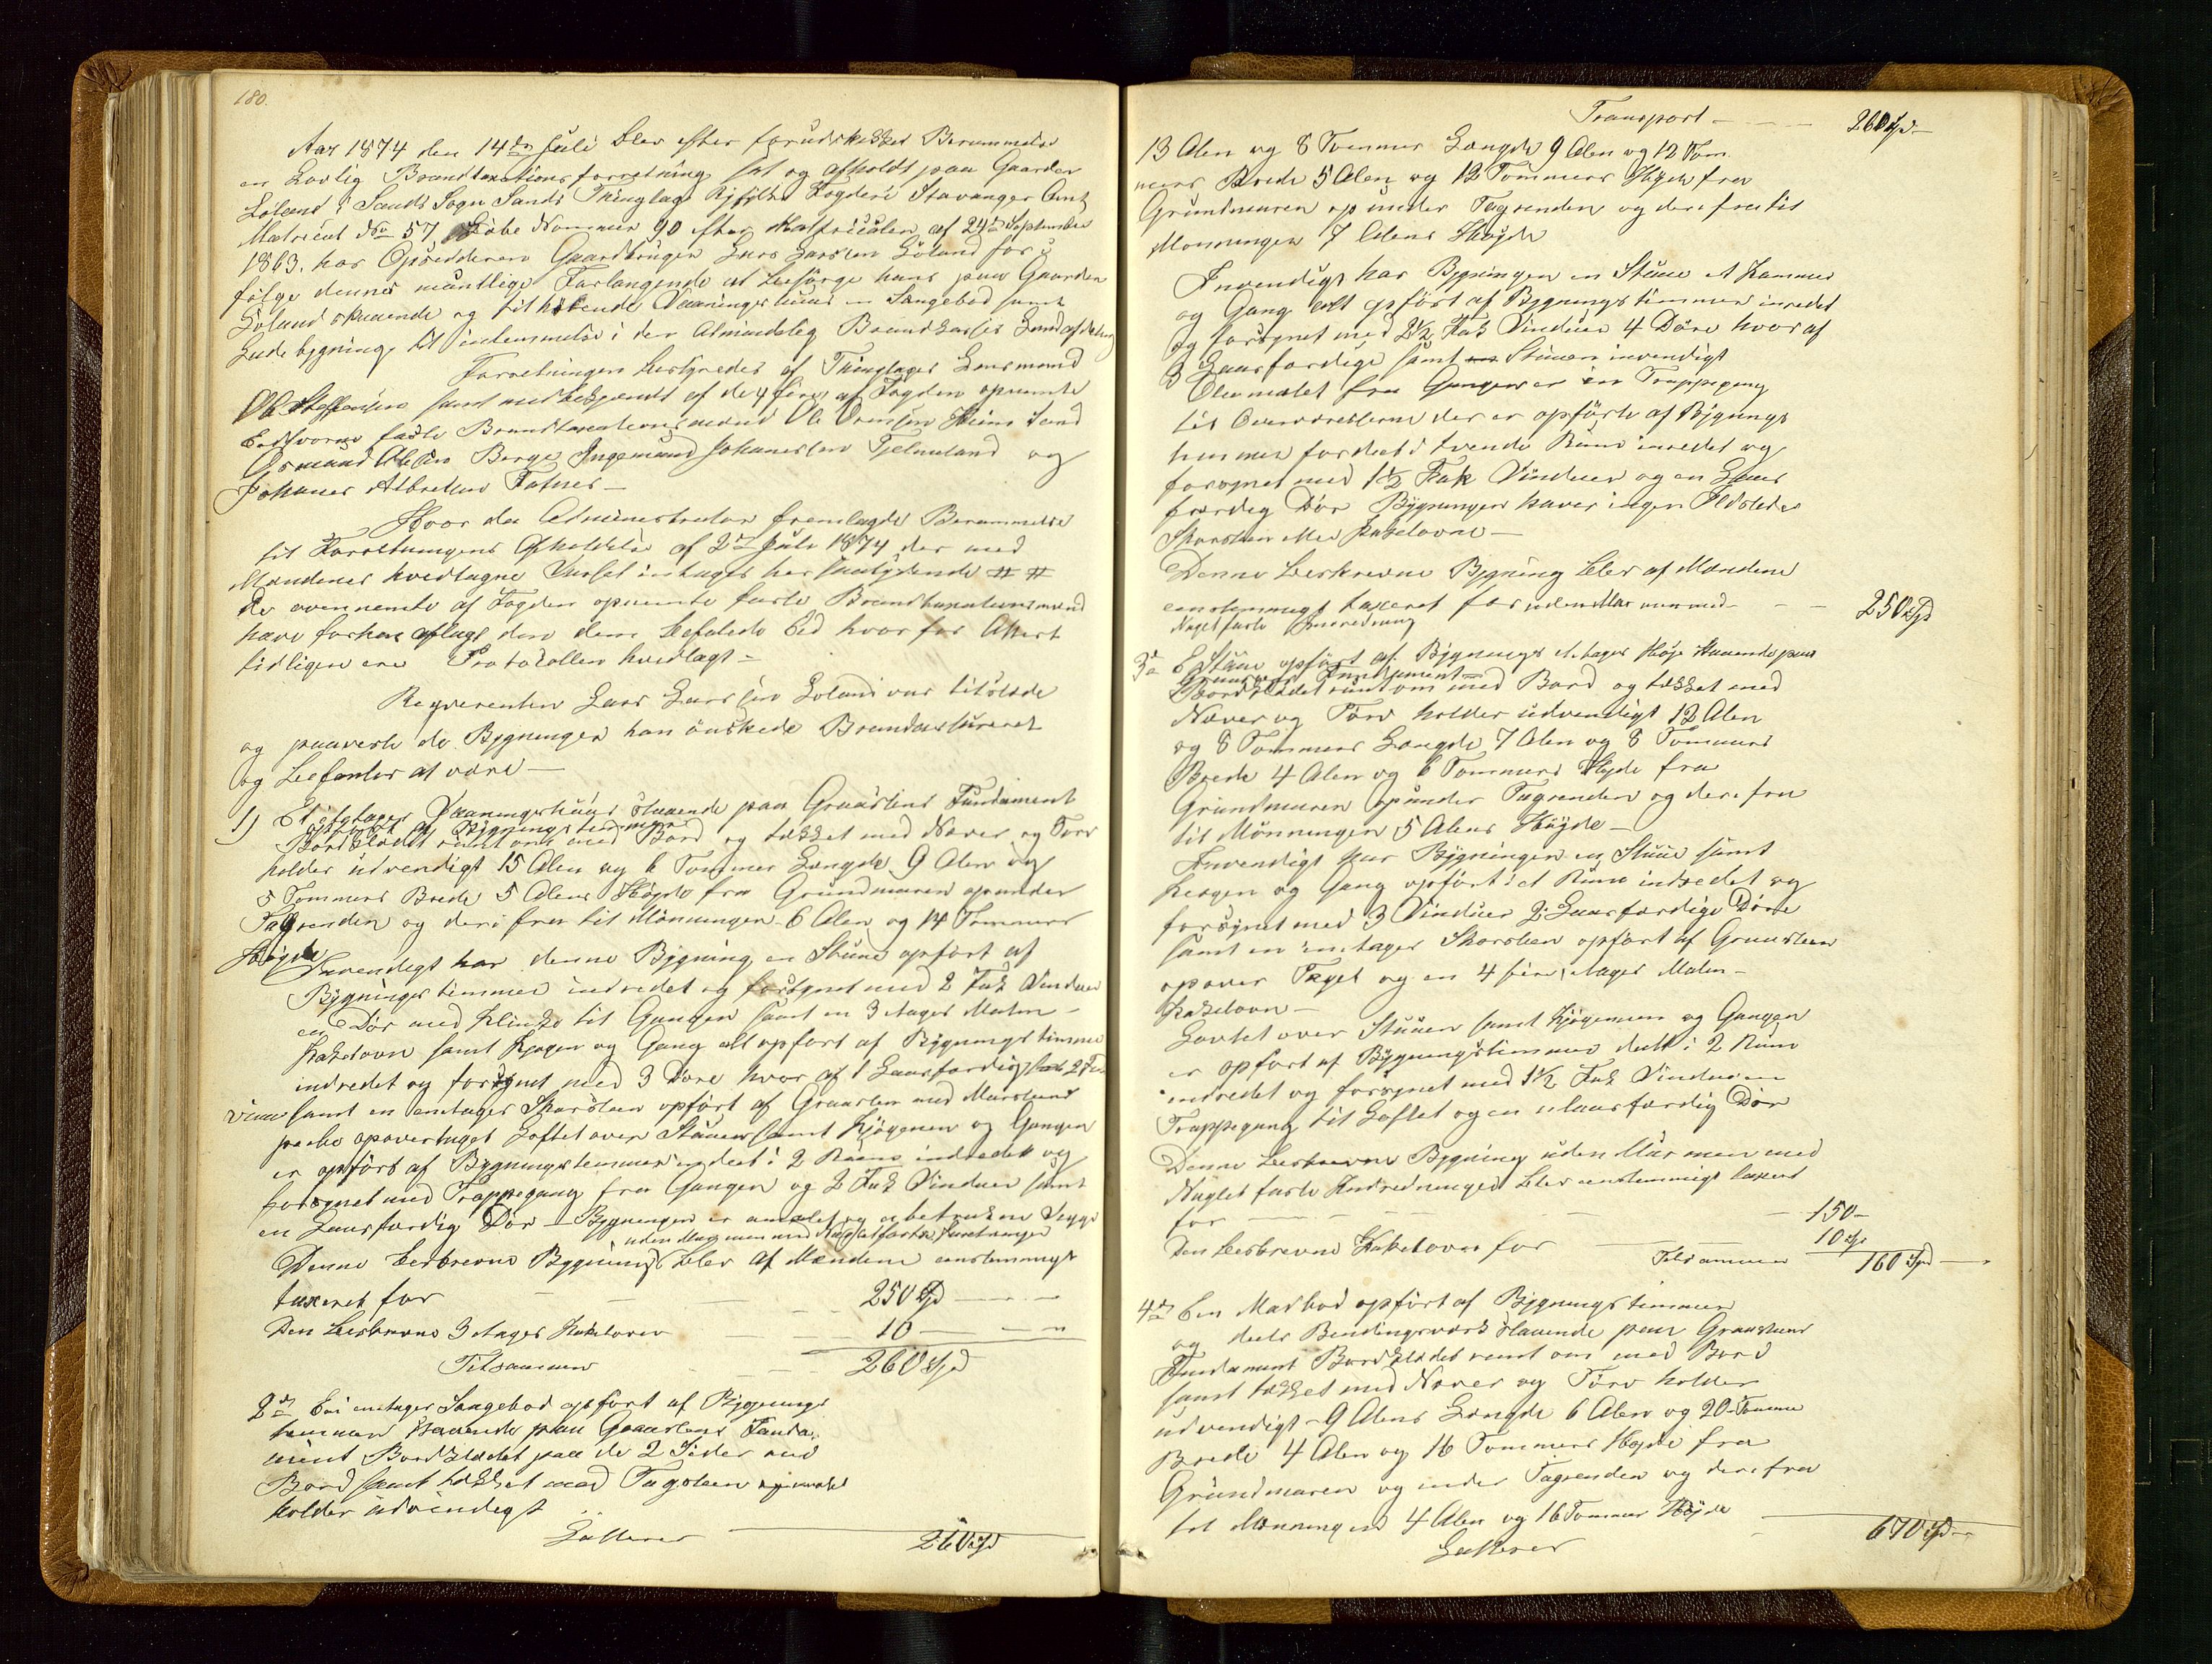 180.
Aar 1874 den 14de Juli blev efter forudskikket Berammelse
en Lovlig Brandtaxationsforretning sat og afholdt paa Gaarden
Løland i Sands Sogn Sands Thinglag Ryfylke Fogderi Stavanger Amt
Matricul No 57, Løbe Nommer 90 efter Matriculen af 24de September
1863. hos Opsidderen Gaardbruger Lars Larsen Løland for i
følge dennes mundtlige Forlangende at besørge hans paa Gaarden
Løland staaende og tilhørende Vaaningshuus en Sengebod samt
Ludebygning til indlemmelse i den Almindelig Brandkasses Landafdeling
Forretningen bestyredes af Thinglagets Lensmand
Ole Steffensen samt med af de 4 fire af Fogden opnemte
Eedsvorne faste Brandtaxationsmænd Ole Sand
Osmund Olsen Berge Ingemund Johannesen Fjelmeland og
Johanes Albretsen
Hvor da Administrator fremlagde Berammelse
til Forretningens Afholdelse af 2den Juli 1874 der med
Mændenes hvedtagne Varsel indtages her saalydende # #
De ovennemte af Fogden opnemte faste Brandtaxationsmænd
have forhen aflagt den dem befalede Eed hvor for Attest
tidligere er i Protocollen hvedlagt –
Reqverenten Lars Larsen Løland var tilstæde
og paaveste de Bygninger han ønskede Brandassureret
og befantes at være –
1) Et etages Vaaningshuus staaende paa Graastens Fundament
opført af Bygningstimmer
Bordklædet rundt om med Bord og tækket med Næver og Torv
holder udvendigt 15 Alen og 6 Tommer Længde 9 Alen og
5 Tommers Brede 5 Alens Høyde fra Grundmuren opunder
Tagrenden og derifra til Mønningen 6 Alen og 14 Tommers
Høyde
Invendigt har denne Bygning en Stuue opført af
Bygnings timmer indredet og forsynet med 2 Fak Vinduer
en Dør med Klinke til Gangen samt en 3 etages Malm-
kakelovn samt Kjøgen og Gang alt opført af Bygningstimmer
indredet og forsynet med 3 Døre hvor af 1 Laasfærdig samt 2 Fa
Vinu samt en enetages Skorsteen opført af Graasten med Mursteens
peibe opovertaget Loftet over Stuuen samt Kjøgenen og Gangen
er opført af Bygningstimmer indeet i 2 Rumme indredet og
forsynet med Trappegang fra Gangen og 2 Fak Vinduer samt
en Laasfærdig Dør – Bygningen er anmalet og betrukne Vegge
uden Mur men med Naglefaste Indretninger
Denne beskrevne Bygning blev af Mændene enstemmigt
taxeret for – – – 250 Spd – – –
Den beskrevne 3 etages Kakelovn – – 10 – – –
Tilsammen – – 260 Spd
2de En enetages Sengebod opført af Bygnings
timmer staaende paa Graastens Funda-
ment Bordklædet paa de 2 Sider med
Bord samt tækket med Tagsteen
holder udvendigt
Latterer 260 Spd
Transport – – – 260 Spd –
13 Alen og 8 Tommer Længde 9 Alen og 12 Tom
mers Brede 5 Alen og 12 Tommers Høyde fra
Grundmuren op under Tagrenden og derifra til
Mønningen 7 Alens Høyde
Invendigt har Bygningen en Stuue et Kammer
og Gang alt opført af Bygningstimmer inredet
og forsynet med 2½ Fak Vinduer 4 Døre hvoraf
3 Laasfærdige samt Stuuen invendigt
Oliemalet fra Gangen er en Trappegang
til Overværelserne der er opførte af Bygnings
timmer fordeet i tvende Rum inredet og
forsynet med 1½ Fak Vinduer og en Laas
færdig Dør Bygningen haver ingen Ildsteder
Skorsteen eller Kakelovne –
Denne beskrevne Bygning blev af Mændene
eenstemmigt taxeret for uden Mur men med – – 250 Spd
Nagelfaste Indredning
3de E Stuue opført af Bygnings etages Høye staaende paa
Graasteens Fundament –
Bordklædet rundt om med Bord og tækket med
Næver og Torv holder udvendigt 12 Alen
og 8 Tommers Længde 7 Alen og 8 Tommers
Brede 4 Alen og 6 Tommers Høyde fra
Grundmuren opunder Tagrenden og derifra
til Mønningen 5 Alens Høyde –
Invendigt har Bygningen en Stuue samt
Kjøgen og Gang opført i et Rum indredet og
forsynet med 3 Vinduer 2 Laasfærdige Døre
samt en enetages Skorsteen opført af Graasteen
opover Taget og en 4 fire etages Malm-
kakelovn –
Lovtet over Stuuen samt Kjøgenen og Gangen
er opført af Bygningstimmer deelt i 2 Rum
indredet og forsynet med 1½ Fak Vindue en
Trappegang til Loftet og en ulaasfærdig Dør
Denne beskrevne Bygning uden Mur men med
Naglet faste Indredninger blev eenstemmigt taxeret
for – – – 150 –
Den beskrevne Kakelovn for – – 10 Spd
Tilsammen 160 Spd –
4de En Madbod opført af Bygningstimmer
og deels Bendingsværk staaende paa Graasteens
Fundament Bordklædet rundt om med Bord
samt tækket med Næver og Torv holder
udvendigt 9 Alens Længde 6 Alen og 20 Tomme
Brede 4 Alen og 16 Tommers Høyde fra
Grundmuren og under Tagrenden og derifra
til Mønningen 4 Alen og 16 Tommer Høyde
Latterer 670 Spd –